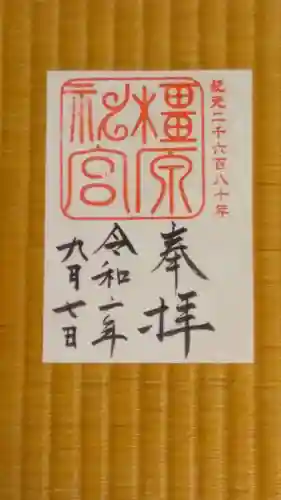 紀元二千六百八十年
橿原
神宮
奉拝
令和二年
九月七日